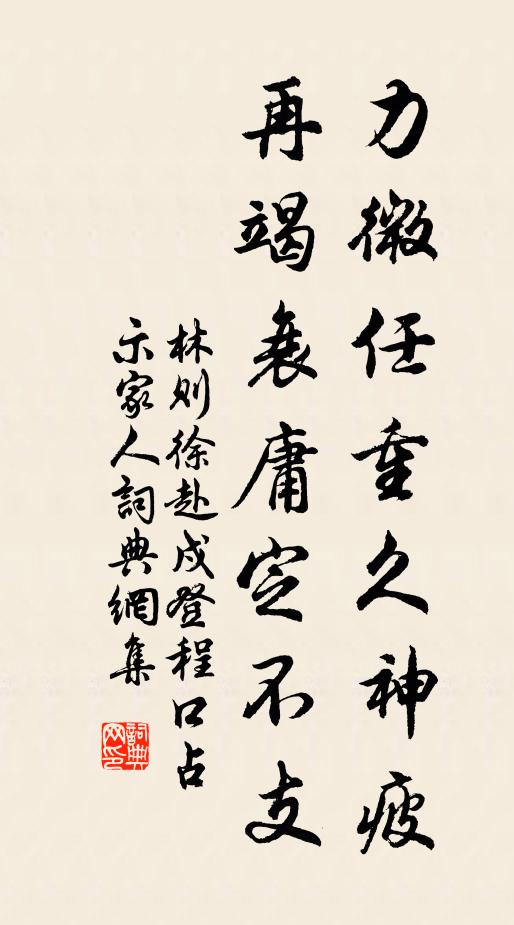 力微任重久神疲
再竭衰庸定不支
林則徐赴戍登程口占
示家人詞典網集
詞典
网印